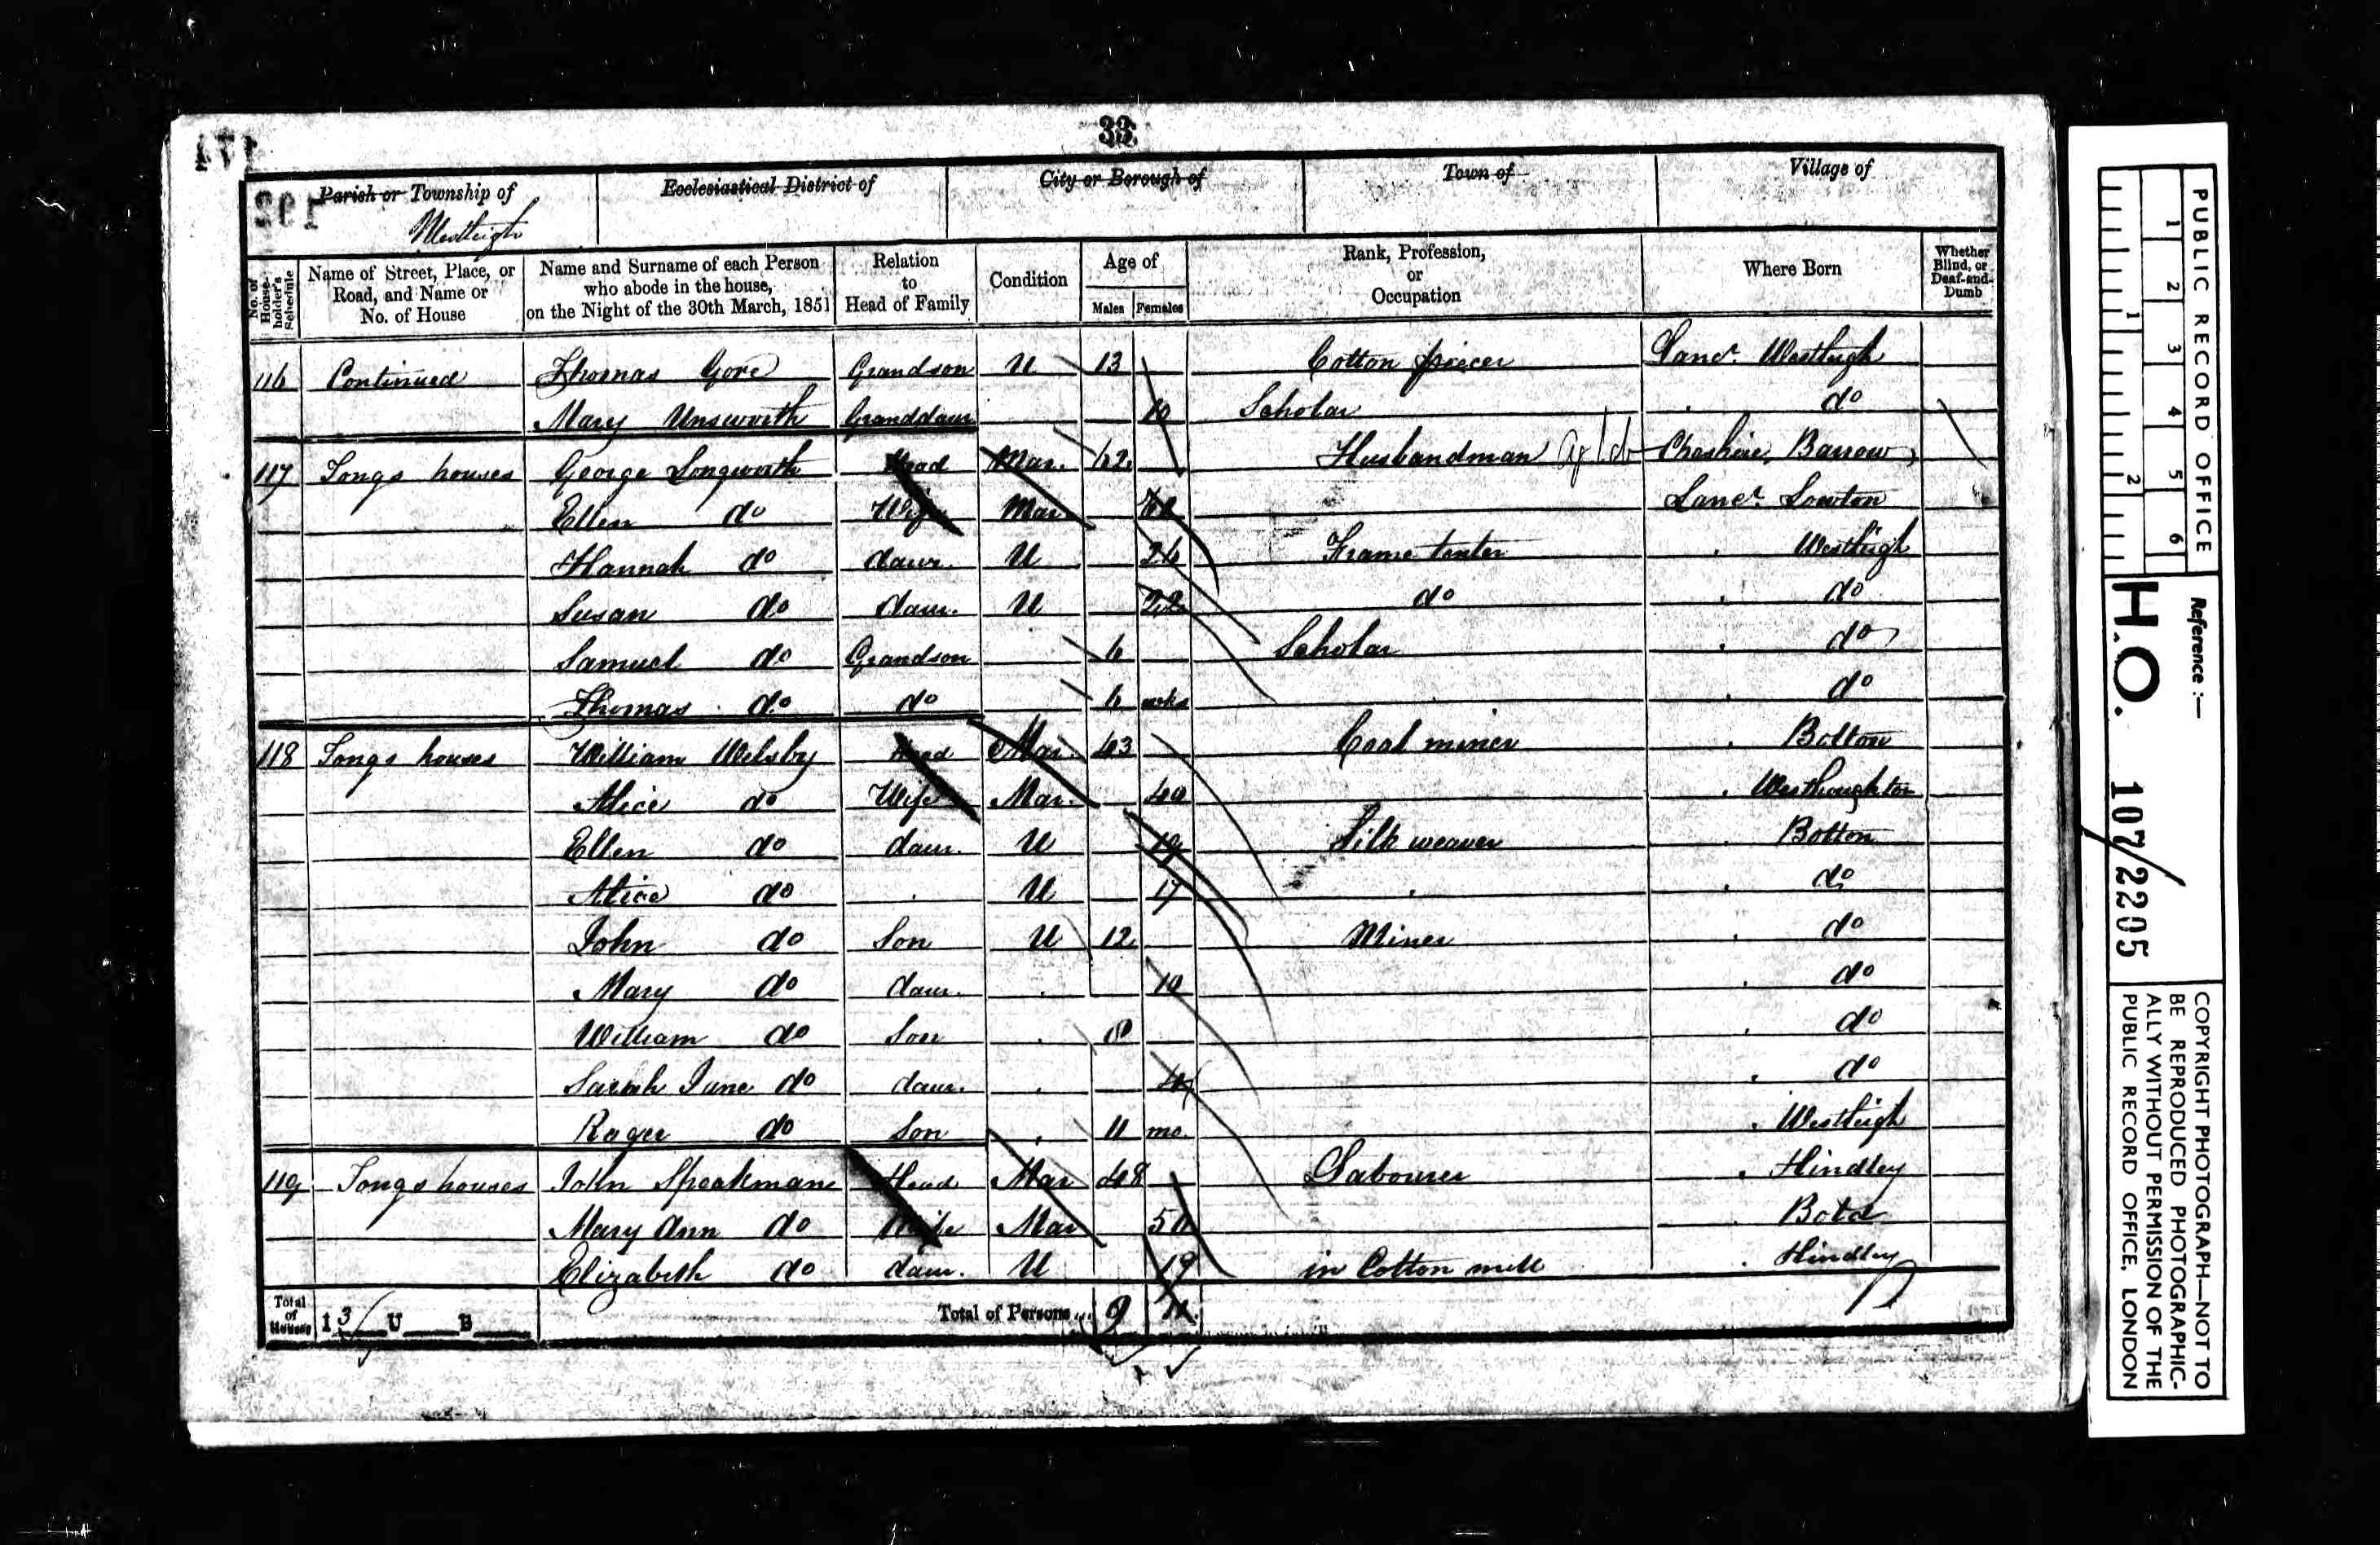 33
Parish or Township of
Ecclesiastical District of
City or Borough of
Town of
Village of
Westleigh
No. of House-holder's Schedule
Name of Street, Place, or Road, and Name or No. of House
Name and Surname of each Person who abode in the house, on the Night of the 30th March, 1851
Relation to Head of Family
Condition
Age of
Males
Females
Rank, Profession, or Occupation
Where Born
Whether Blind, or Deaf-and-Dumb
116 Continued Thomas Gore Grandson U 13 Cotton piecer Lancr. Westleigh
Mary Unsworth Granddaur 10 Scholar do
117 Longs houses George Longworth Head Mar. 62 Husbandman Cheshire, Barrow
Ellen do Wife Mar Lancr. Lowton
Hannah do daur. U 26 Frame tenter Westleigh
Susan do daur. U 22 do do
Samuel do Grandson 6 Scholar do
Thomas do do 6 wks do
118 Longs houses William Welsby Head Mar. 43 Coal miner Bolton
Alice do Wife Mar. 40 Westhoughton
Ellen do daur. U 19 Silk weaver Bolton
Alice do U 17 do
John do Son U 12 Miner do
Mary do daur. 10 do
William do Son 8 do
Sarah Jane do daur. 4 do
Roger do Son 11 mo. Westleigh
119 Longs houses John Speakman Head Mar 48 Labourer Hindley
Mary Ann do Wife Mar 50
Elizabeth do daur. U 19 in Cotton mill Hindley
Total of Houses I 3 U B Total of Persons 9 11
PUBLIC RECORD OFFICE
1 2 3 4 5 6
1 2
Reference :—
H.O. 107/2205
COPYRIGHT PHOTOGRAPH—NOT TO
BE REPRODUCED PHOTOGRAPHIC-
ALLY WITHOUT PERMISSION OF THE
PUBLIC RECORD OFFICE, LONDON